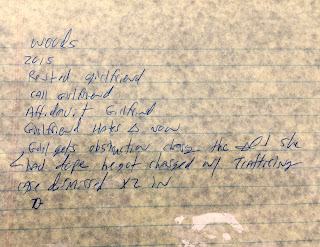 Woods
2015
Rented girlfriend
Call Girlfriend
Affidavit Girlfrind
Girlfriend Hates Δ now
Girl gets obstruction charge the & she
had dope he got charged w/ Trafficing
case dismissed x2 in